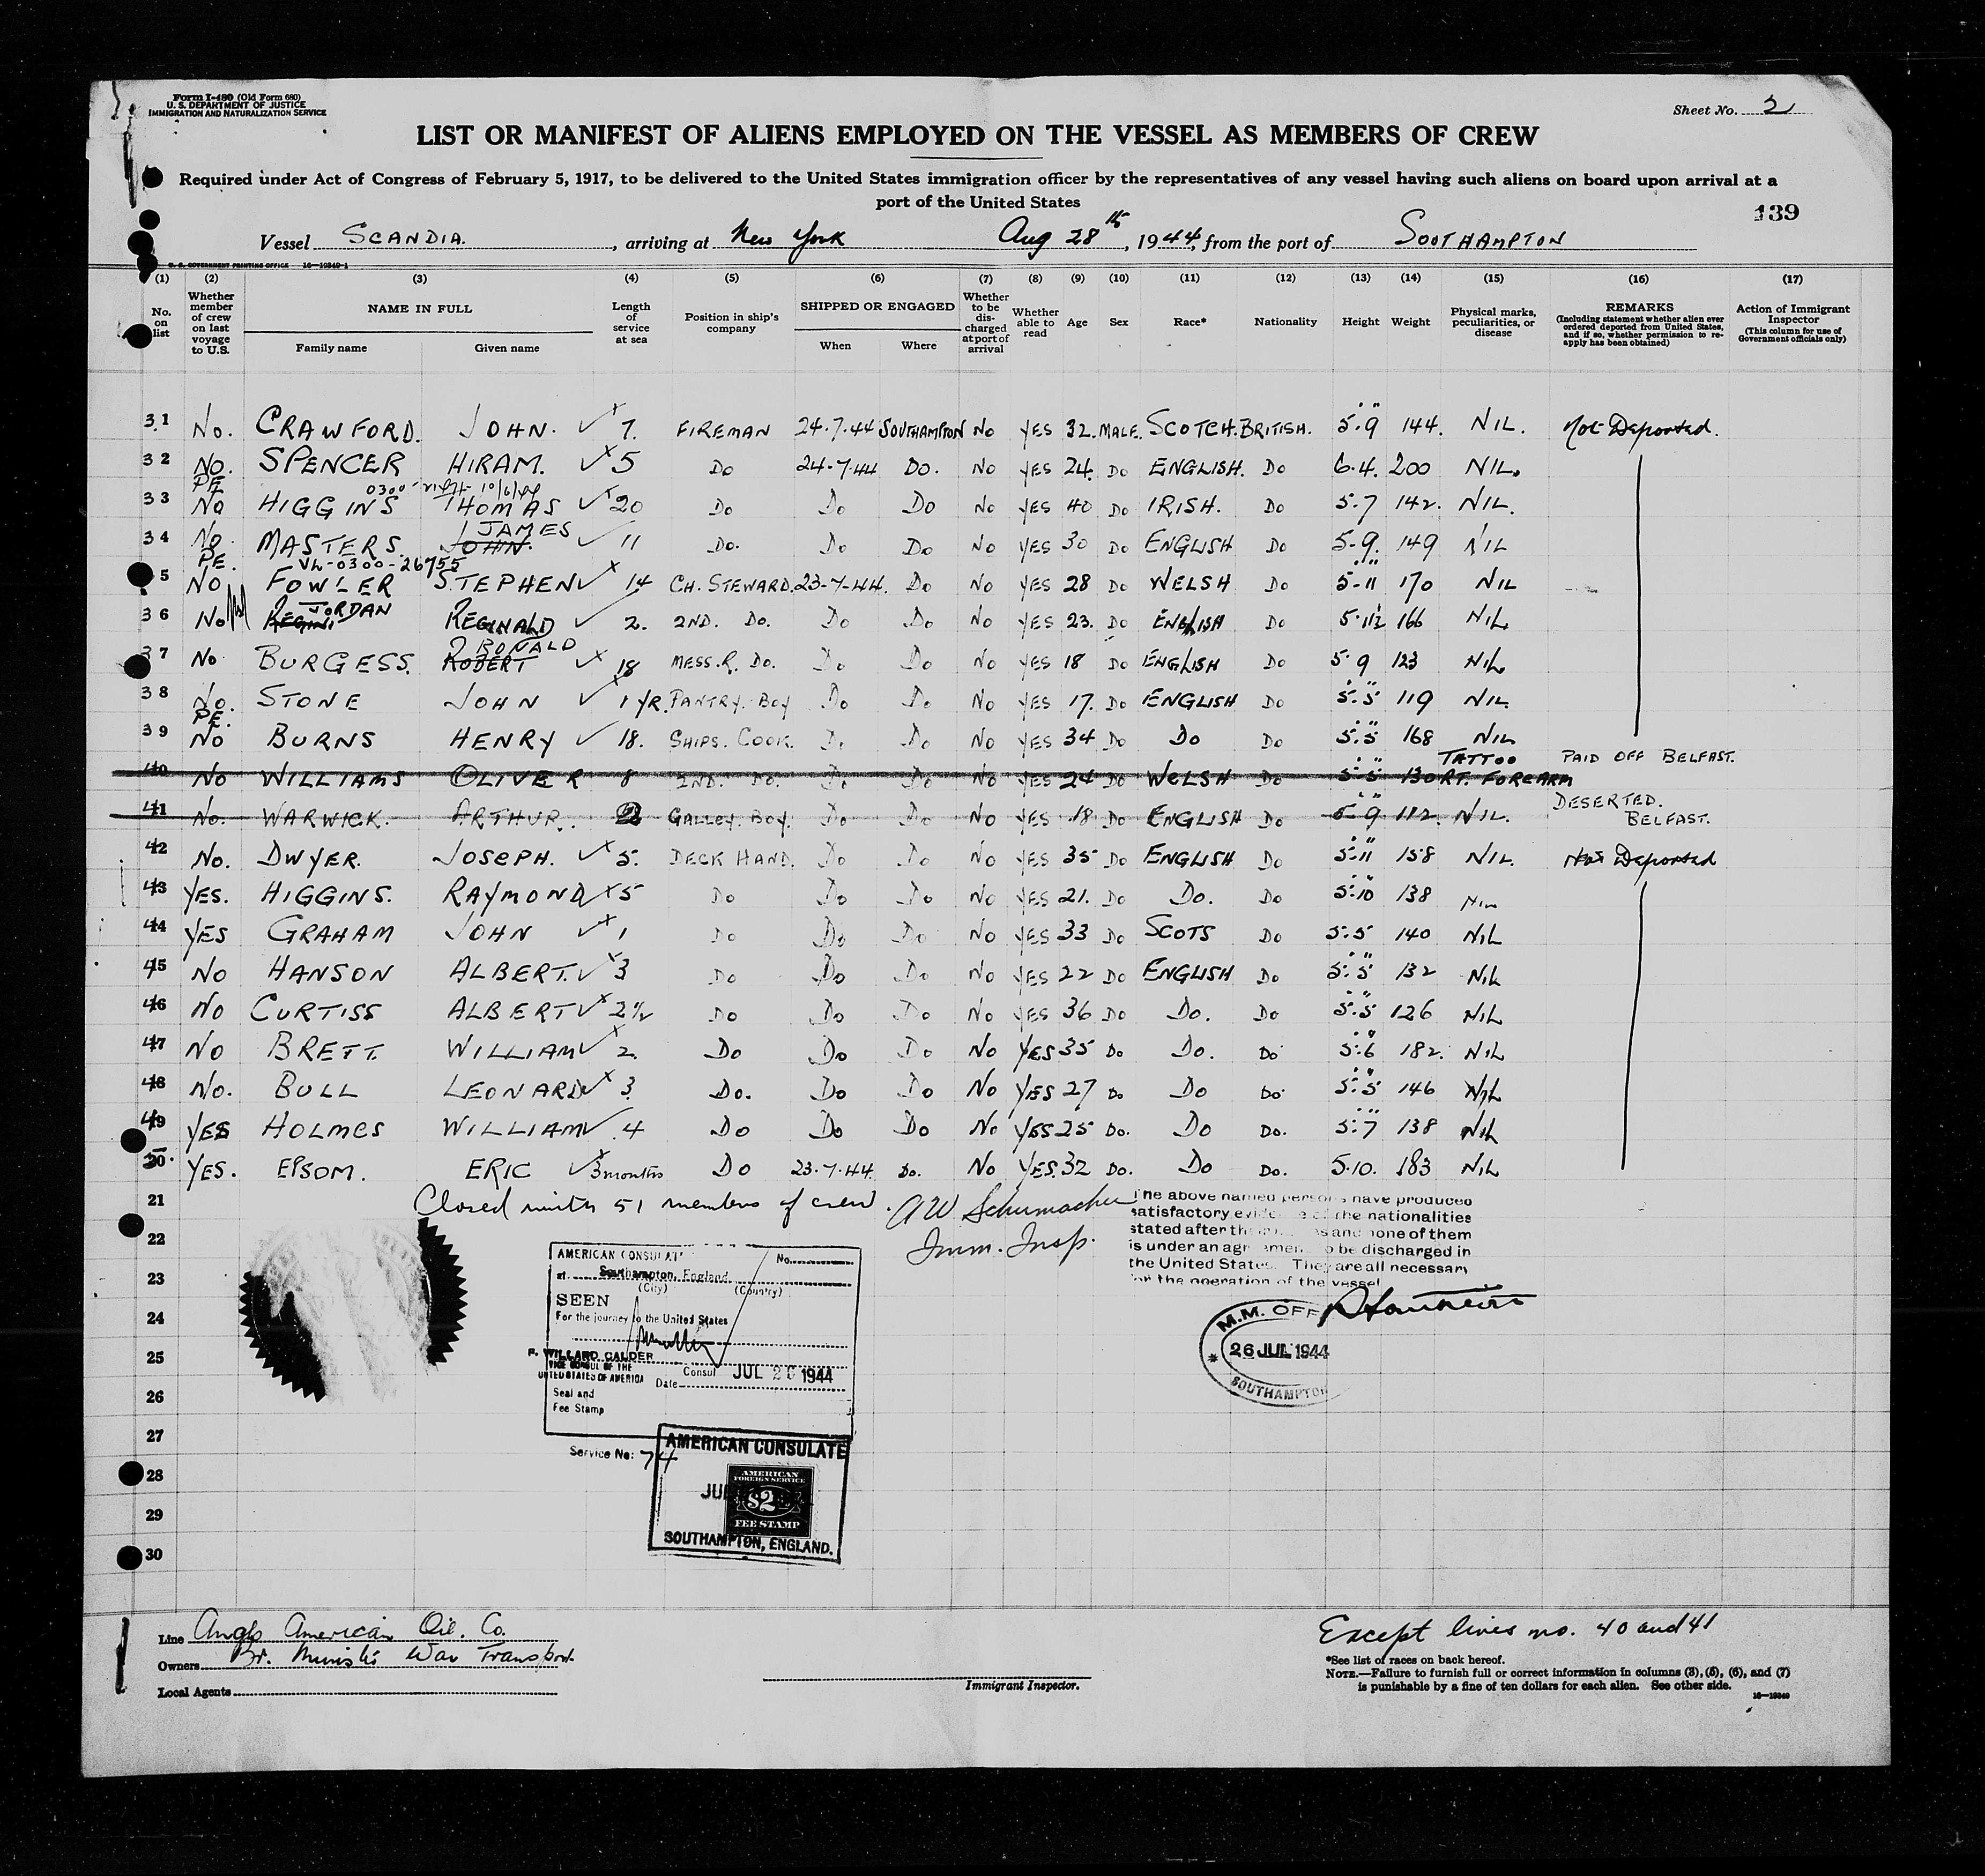 Form I-480 (Old Form 680)
U. S. DEPARTMENT OF JUSTICE
IMMIGRATION AND NATURALIZATION SERVICE
Sheet No. 2
LIST OR MANIFEST OF ALIENS EMPLOYED ON THE VESSEL AS MEMBERS OF CREW
Required under Act of Congress of February 5, 1917, to be delivered to the United States immigration officer by the representatives of any vessel having such aliens on board upon arrival at a
port of the United States
139
Vessel SCANDIA. , arriving at New York Aug 28th, 1944, from the port of SOUTHAMPTON
U. S. GOVERNMENT PRINTING OFFICE 16—19340-1
(1) (2) (3) (4) (5) (6) (7) (8) (9) (10) (11) (12) (13) (14) (15) (16) (17)
No. on list
Whether member of crew on last voyage to U.S.
NAME IN FULL
Family name Given name
Length of service at sea
Position in ship's company
SHIPPED OR ENGAGED
When Where
Whether to be discharged at port of arrival
Whether able to read
Age
Sex
Race*
Nationality
Height
Weight
Physical marks, peculiarities, or disease
REMARKS
(Including statement whether alien ever ordered deported from United States, and if so, whether permission to reapply has been obtained)
Action of Immigrant Inspector
(This column for use of Government officials only)
31 No. CRAWFORD. JOHN. ✓ x 7. FIREMAN 24.7.44 SOUTHAMPTON NO YES 32. MALE. SCOTCH. BRITISH. 5.9 144. NIL. Not Deported.
32 NO. SPENCER HIRAM. ✓ x 5 DO 24-7-44 DO. NO YES 24. DO ENGLISH. DO 6.4. 200 NIL.
PE 0300
33 NO HIGGINS THOMAS ✓ x 20 DO DO DO NO YES 40 DO IRISH. DO 5.7 142. NIL.
JAMES
34 NO. MASTERS. JOHN. ✓ 11 DO. DO DO NO YES 30 DO ENGLISH DO 5-9. 149 NIL
PE. VL-0300-26755
5 NO FOWLER STEPHEN ✓ x 14 CH. STEWARD. 23-7-44. DO NO YES 28 DO WELSH DO 5-11 170 NIL
JORDAN
36 NO REGINALD ✓ 2. 2ND. DO. DO DO NO YES 23. DO ENGLISH DO 5.11½ 166 NIL.
RONALD
37 NO BURGESS. ROBERT ✓ x 18 MESS. R. DO. DO DO NO YES 18 DO ENGLISH DO 5.9 123 NIL
38 NO. STONE JOHN ✓ x 1 YR. PANTRY. BOY DO DO NO YES 17. DO ENGLISH DO 5.5 119 NIL
PE.
39 NO BURNS HENRY ✓ 18. SHIPS. COOK. DO DO NO YES 34 DO DO DO 5.5 168 NIL
40 NO WILLIAMS OLIVER 8 2ND. DO. DO DO NO YES 24 DO WELSH DO 5.5 130 TATTOO RT. FOREARM PAID OFF BELFAST.
41 NO. WARWICK. ARTHUR. 2 GALLEY. BOY. DO DO NO YES 18 DO ENGLISH DO 5-9 112. NIL. DESERTED. BELFAST.
42 NO. DWYER. JOSEPH. ✓ x 5. DECK HAND. DO DO NO YES 35 DO ENGLISH DO 5.11 158 NIL. Not Deported
43 YES. HIGGINS. RAYMOND x 5 DO DO DO NO YES 21. DO DO. DO 5.10 138 NIL
44 YES GRAHAM JOHN ✓ x 1 DO DO DO NO YES 33 DO SCOTS DO 5.5 140 NIL
45 NO HANSON ALBERT. ✓ x 3 DO DO DO NO YES 22 DO ENGLISH DO 5.5 132 NIL
46 NO CURTISS ALBERT ✓ x 2½ DO DO DO NO YES 36 DO DO. DO 5.5 126 NIL
47 NO BRETT. WILLIAM ✓ x 2. DO DO DO NO YES 35 DO. DO. DO 5.6 182. NIL
48 NO. BULL LEONARD ✓ x 3. DO. DO DO NO YES 27 DO DO DO. 5.5 146 NIL
49 YES HOLMES WILLIAM ✓ 4 DO DO DO NO YES 25 DO. DO DO. 5.7 138 NIL
50 YES. EPSOM. ERIC ✓ x 3 months DO 23.7.44. DO. NO YES. 32 DO. DO DO. 5.10. 183 NIL
21 Closed with 51 members of crew. A W Schumacher
Imm. Insp.
The above named persons have produced
satisfactory evidence of the nationalities
stated after their names and none of them
is under an agreement to be discharged in
the United States. They are all necessary
for the operation of the vessel
22
23
24
25
26
27
28
29
30
AMERICAN CONSULATE No.
at Southampton, England.
(City) (Country)
SEEN
For the journey to the United States
F. WILLARD CALDER
VICE CONSUL OF THE
UNITED STATES OF AMERICA
Consul
Date JUL 26 1944
Seal and
Fee Stamp
Service No: 74
AMERICAN CONSULATE
AMERICAN
FOREIGN SERVICE
$2
FEE STAMP
SOUTHAMPTON, ENGLAND.
M.M. OFF
26 JUL 1944
SOUTHAMPTON
Line Anglo American Oil. Co.
Owners Br. Ministr War Transport.
Local Agents
Immigrant Inspector.
Except lines no. 40 and 41
*See list of races on back hereof.
NOTE.—Failure to furnish full or correct information in columns (3), (5), (6), and (7)
is punishable by a fine of ten dollars for each alien. See other side.
16—19340